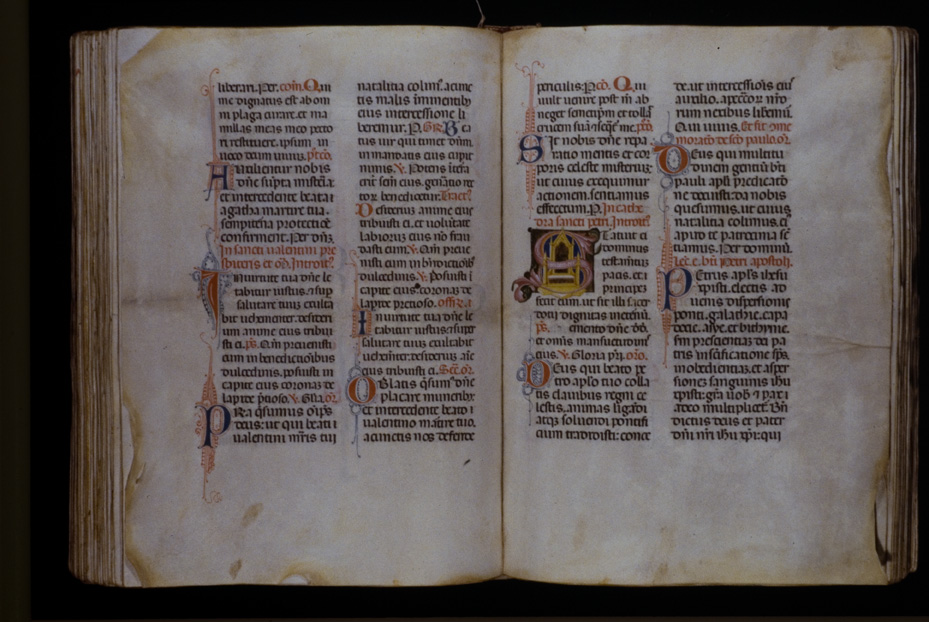 liberari. Per. com. Qui
me dignatus est ab om
ni plaga curare. et ma
millas meas meo pecto
ri restituere. ipsum in
uoco deum uiuum. p̃co.
Auxilientur nobis
dñe sũpta misteria.
et intercedente beata
agatha martire tua.
sempiterna protectiõe
confirment. Per dñz.
In sancti ualentini pre
sbiteris et Introit.
In uirtute tua dñe le
tabitur iustus. et sup
salutare tuum exulta
bit uehementer. desideri
um anime eius tribui
sti ei. ps. Qm preuenisti
eum in benedictiõibus
dulcedinis. posuisti in
capite eius coronam de
lapide p̃tioso. V. Glia. or.
Presta qsumus oĩps
deus. ut qui beati
ualentini mr̃is tui
natalitia colim̃. a cunc
tis malis imminentibz
eius intercessione li
beremur. P. GR. Be
tus uir qui timet dñm.
in mandatis eius cupit
nimis. V. Potens in tẽra
erit sem̃ eius. generatio re
ctoꝝ benedicetur. Tract.
Desiderium anime eius
tribuisti ei. et uoluntate
labioꝝ eius nõ frau
dasti eum. V. Qm preue
nisti eum in bñdictiõibz
dulcedinis. V. Posuisti ĩ
capite eius coronam de
lapide pretioso. offr̃a
In uirtute tua dñe le
tabitur iustus. et super
salutare tuum exultabit
uehementer. desiderium aĩe
eius tribuisti ei. Sec. or.
Oblatis qsum̃ dñe
placare muneribz.
et intercedente beato
ualentino martire tuo.
a cunctis nos defende
periculis. P. cõ. Qui
uult uenire post me ab
neget semetipm et tollat
crucem suã. et seqr̃ me. p̃co.
Sit nobis dñe repa
ratio mentis et cor
poris celeste misterium.
ut cuius exequimur
actionem. sentiamus
effectum. P. In cathe
dra sancti petri. Introit.
Statuit ei
dominus
testam̃tũ
pacis. et
principẽ
fecit eum ut sit illi sacer
dotii dignitas in eternũ.
ps. Memento dñe dd.
et omnis mansuetudinis
eius. V. Gloria pr̃i. oro.
Deus qui beato pe
tro aplo tuo colla
tis clauibus regni ce
lestis. animas ligandi
atqz soluendi pontifi
cium tradidisti. conce
de. ut intercessiõis eius
auxilio. a peccatoꝝ nr̃o
rum nexibus liberemur.
Qui uiuis. Et fit cõme
moratio de sco paulo. or.
Deus qui multitu
dinem gentiũ bti
pauli apli predicatio
ne docuisti. da nobis
quesumus. ut cuius
natalitia colimus. ei
apud te patrocinia sẽ
tiamus. Per dominũ.
Lec. e. bti petri apostoli.
Petrus apls ihesu
xpisti. electis ad
uenis dispersionis
ponti. galathie. capa
docie. asye. et bithynie.
sm̃ prescientiam dei pa
tris in sc̃ificatione sp̃s.
in obedientiam. et asper
sionem sanguinis ihu
xpisti. gr̃a uobis et pax
a deo multiplicetur. Bñ
dictus deus et pater
dñi nr̃i ihu xp̃i. qui